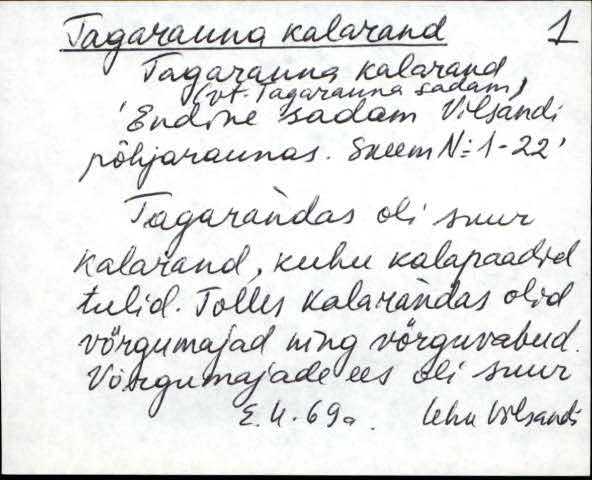 Tagarauna kalarand 1
Tagarauna kalarand
(vt. Tagarauna sadam),
'Endine sadam Vilsandi
põhjaraunas. Skeem N: 1-22'
Tagaràndas oli suur
kalarand, kuhu kalapaadid
tulid. Tolles kalaràndas olid
võrgumajad ning võrguvabud.
Võrgumajade ees oli suur
E.U. 69a. Lehu Vilsandi